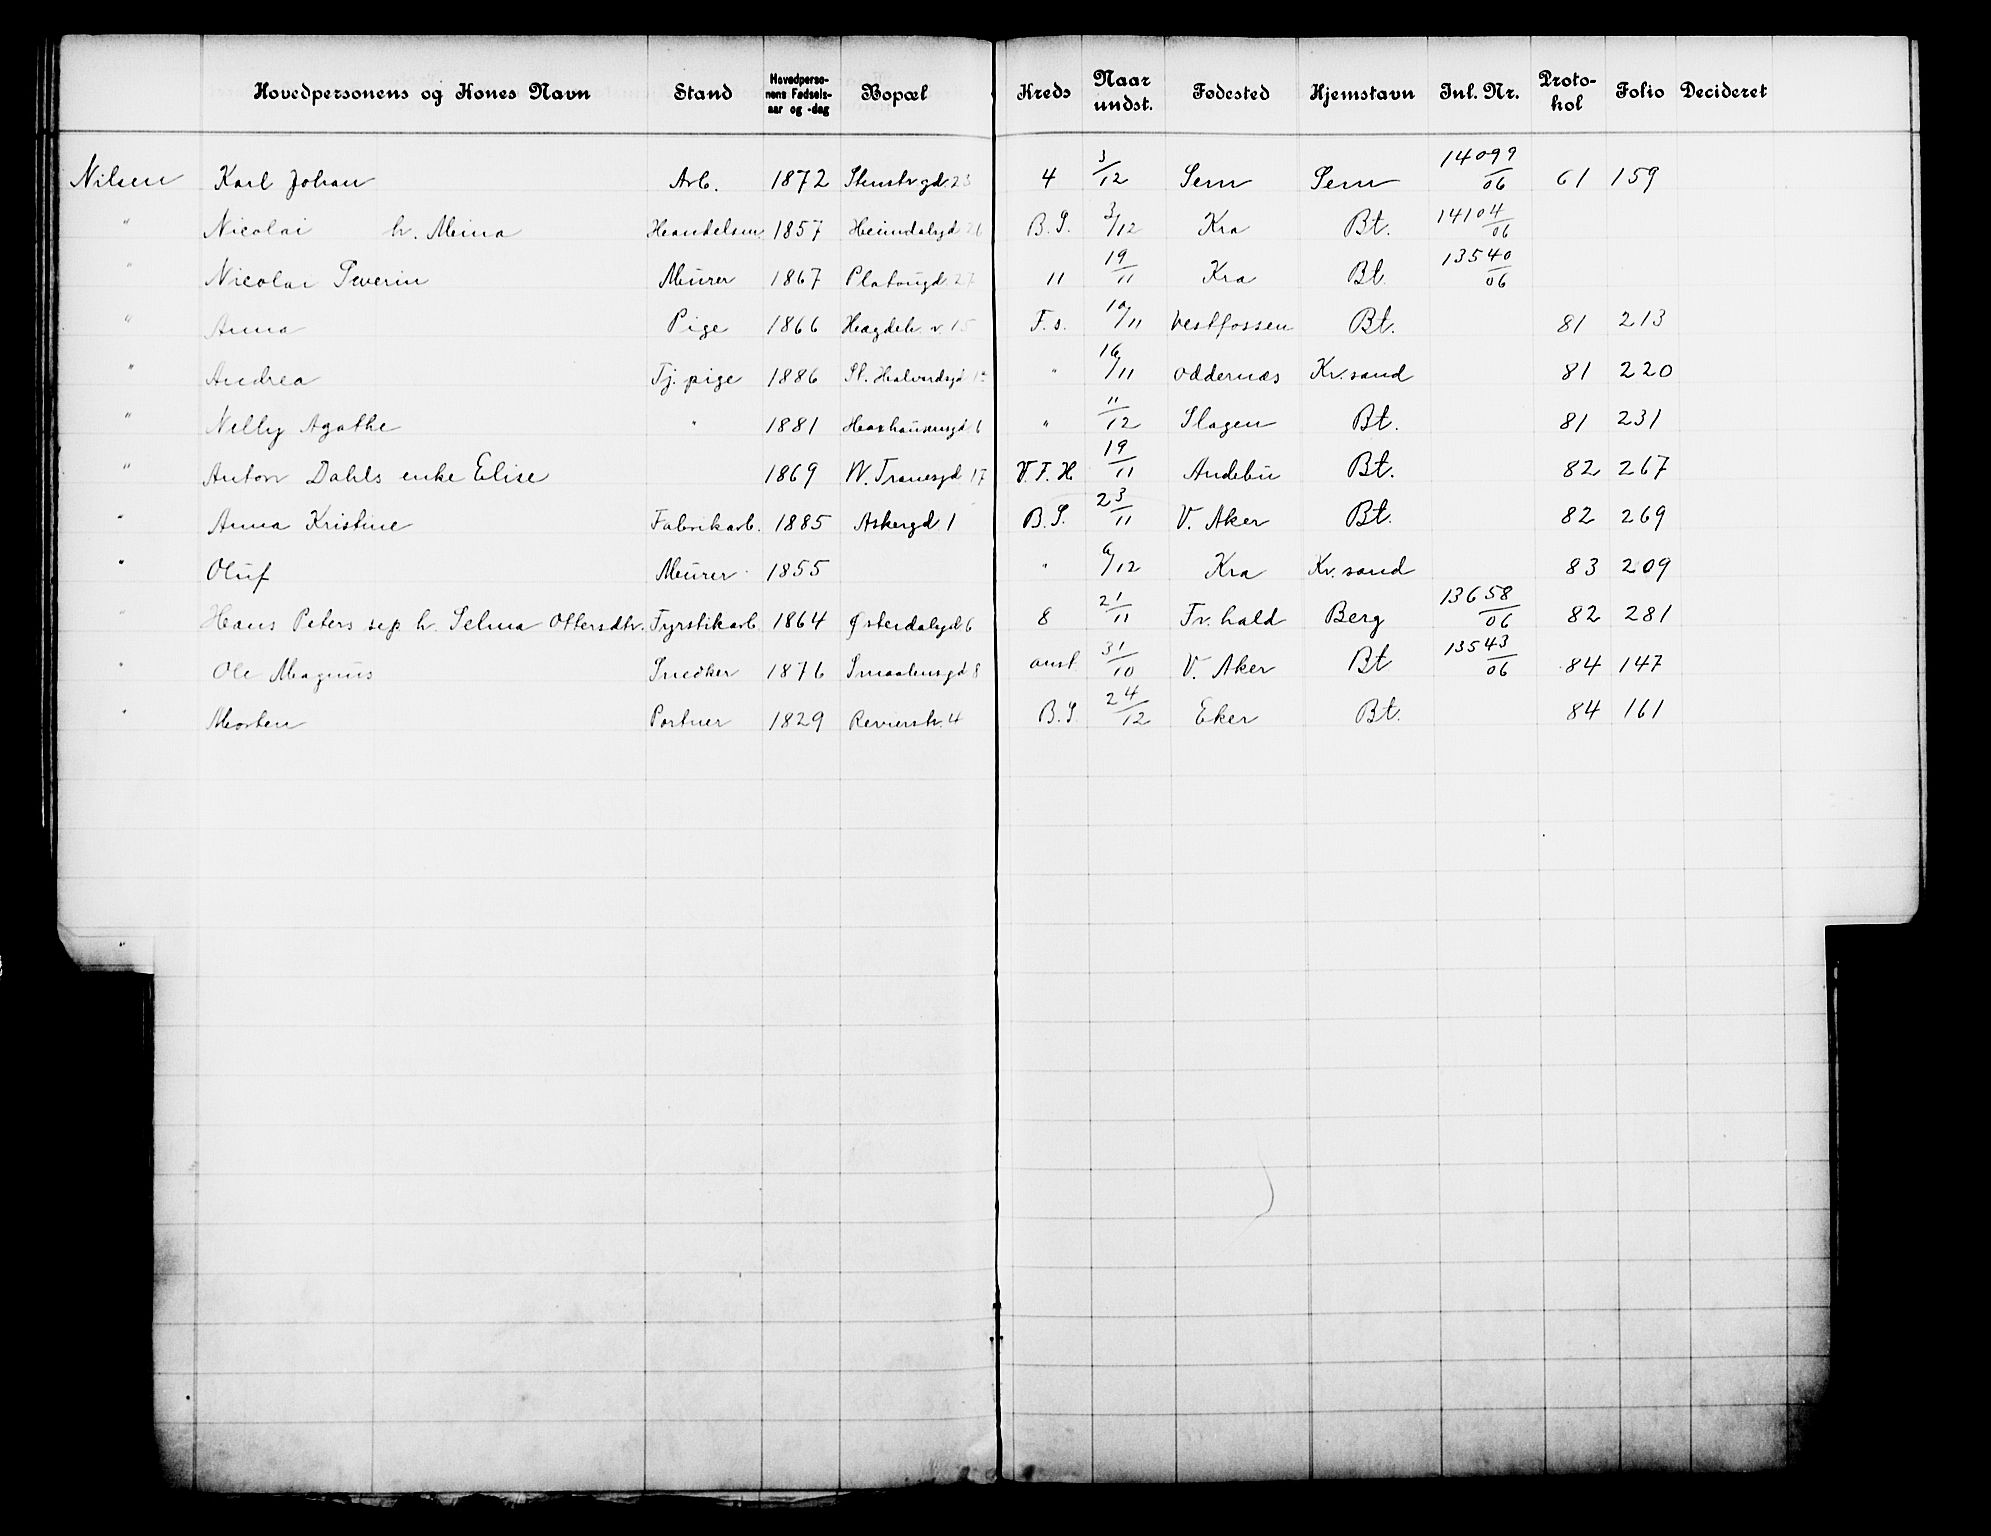 Hovedpersonens og Kones Navn Stand Hovedpersonens Fødselsaar og -dag Bopæl Kreds Naar undst. Fødested Hjemstavn Inl. Nr. Protokol Folio Decideret
Nilsen Karl Johan Arb. 1872 Stenstr gd. 23 4 3/12 Sem Sem 14099/06 61 159
" Nicolai h. Mina Handelsm. 1857 Heimdalsgd 26 B.S. 3/12 Kra Bt. 14104/06
" Nicolai Severin Murer 1867 Platougd. 27 11 19/11 Kra Bt. 13540/06
" Anna Pige 1866 Hægdeh. v. 15 F.s. 10/11 Vestfossen Bt. 81 213
" Andrea Tj. pige 1886 St. Halvardsgd " 16/11 Oddernæs Kr.sand 81 220
" Nelly Agathe " 1881 Haxhausensgd 6 " 11/12 Slagen Bt. 81 231
" Anton Dahls enke Elise 1869 W. Tranesgd 17 V.F.H 19/11 Andebu Bt. 82 267
" Anna Kristine Fabrikarb. 1885 Askergd 1 B.S. 23/11 V. Aker Bt. 82 269
" Oluf Murer 1855 " 6/12 Kra Kr.sand 83 209
" Hans Peters sep h. Selma Ottersdtr. Fyrstikarb. 1864 Østerdalsgd 6 8 21/11 Fr.hald Berg 13658/06 82 281
" Ole Magnus Snedker 1876 Smaalensgd 8 anst. 31/10 V. Aker Bt 13543/06 84 147
" Morten Portner 1829 Revierstr. 4 B.S. 24/12 Eker Bt. 84 161
"